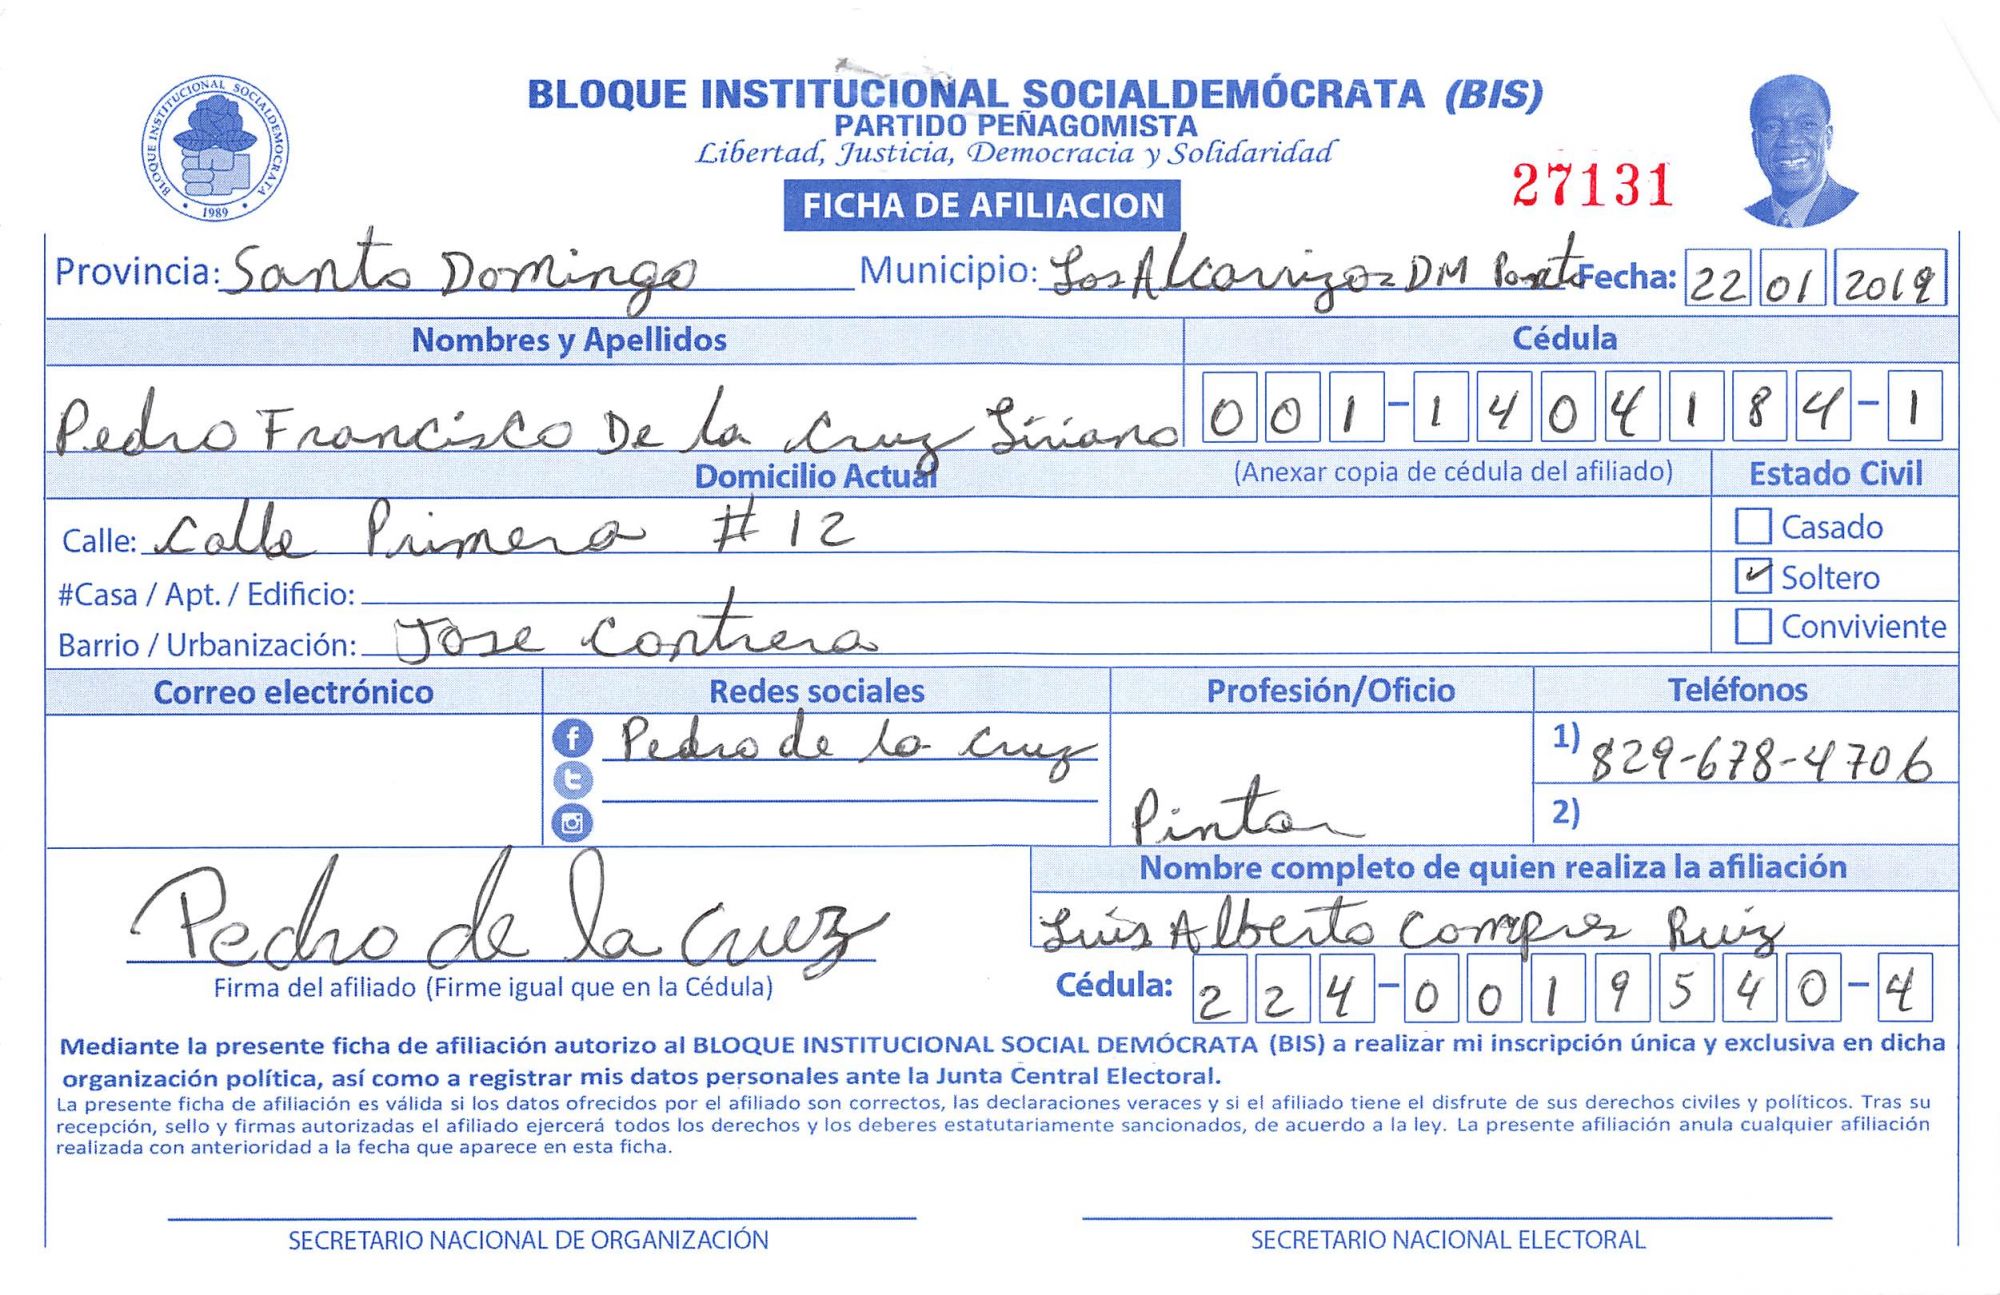 BLOQUE INSTITUCIONAL SOCIALDEMÓCRATA (BIS)
PARTIDO PEÑAGOMISTA
Libertad, Justicia, Democracia y Solidaridad
BLOQUE INSTITUCIONAL SOCIALDEMOCRATA
1989
27131
FICHA DE AFILIACION
Provincia: Santo Domingo Municipio: Los Alcarrizos DM Fecha: 22 01 2019
Nombres y Apellidos Cédula
Pedro Francisco De la Cruz Siriano 001-1404184-1
Domicilio Actual (Anexar copia de cédula del afiliado) Estado Civil
Calle: Calle Primera # 12 Casado
#Casa / Apt. / Edificio: Soltero
Barrio / Urbanización: Jose Contrera Conviviente
Correo electrónico Redes sociales Profesión/Oficio Teléfonos
Pedro de la Cruz Pintor 1) 829-678-4706
2)
Nombre completo de quien realiza la afiliación
Pedro de la Cruz Luis Alberto Compres Ruiz
Firma del afiliado (Firme igual que en la Cédula) Cédula: 224-0019540-4
Mediante la presente ficha de afiliación autorizo al BLOQUE INSTITUCIONAL SOCIAL DEMÓCRATA (BIS) a realizar mi inscripción única y exclusiva en dicha
organización política, así como a registrar mis datos personales ante la Junta Central Electoral.
La presente ficha de afiliación es válida si los datos ofrecidos por el afiliado son correctos, las declaraciones veraces y si el afiliado tiene el disfrute de sus derechos civiles y políticos. Tras su
recepción, sello y firmas autorizadas el afiliado ejercerá todos los derechos y los deberes estatutariamente sancionados, de acuerdo a la ley. La presente afiliación anula cualquier afiliación
realizada con anterioridad a la fecha que aparece en esta ficha.
SECRETARIO NACIONAL DE ORGANIZACIÓN SECRETARIO NACIONAL ELECTORAL